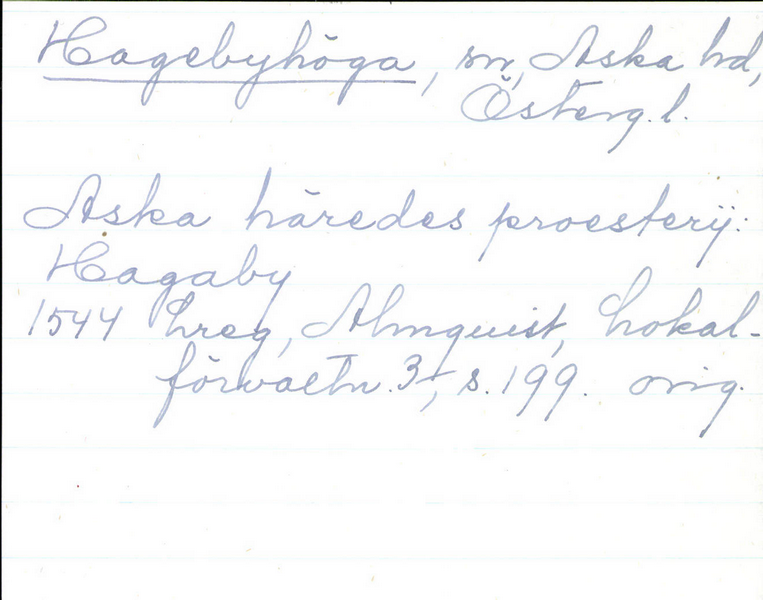 Hagebyhöga, sn, Aska hd,
Österg. l.
Aska häredes proesterij:
Hagaby
1544 Lreg, Almquist, Lokal-
förvaltn. 3, s. 199. orig.